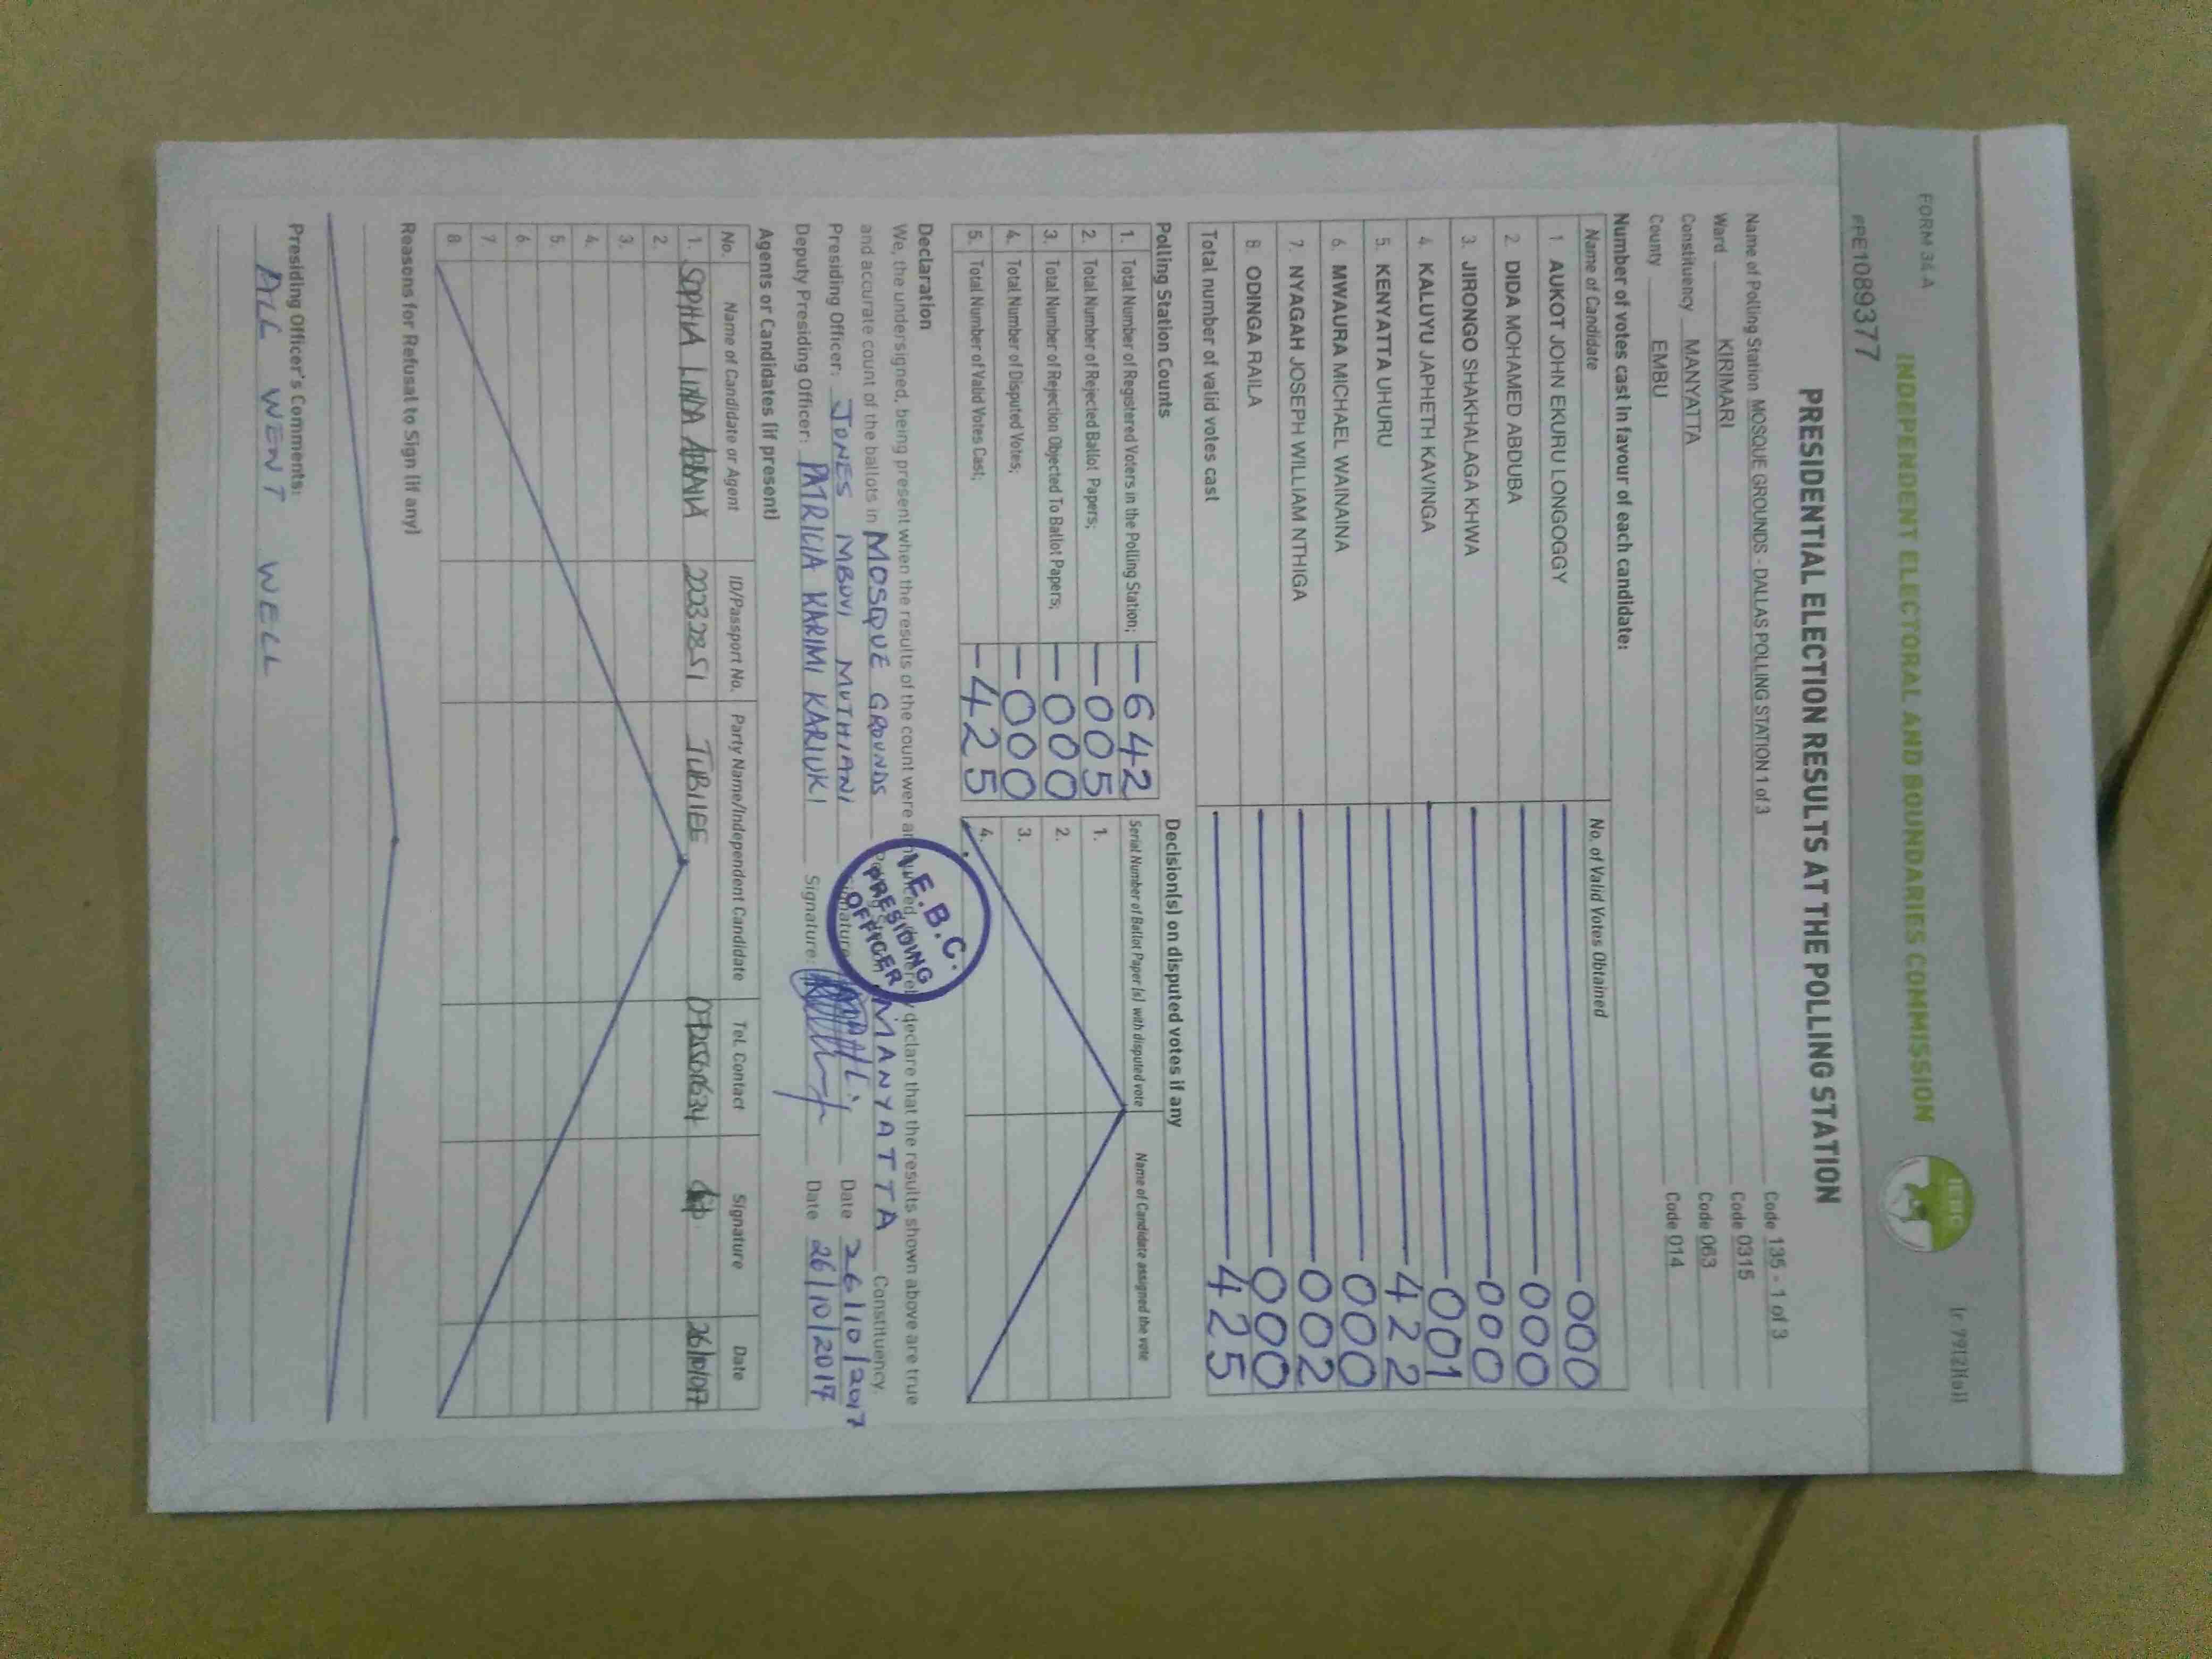 FORM 34 A
INDEPENDENT ELECTORAL AND BOUNDARIES COMMISSION
IEBC
(r 79(2)(a))
PPE1089377
PRESIDENTIAL ELECTION RESULTS AT THE POLLING STATION
Name of Polling Station MOSQUE GROUNDS - DALLAS POLLING STATION 1 of 3 Code 135 - 1 of 3
Ward KIRIMARI Code 0315
Constituency MANYATTA Code 063
County EMBU Code 014
Number of votes cast in favour of each candidate:
Name of Candidate No. of Valid Votes Obtained
1. AUKOT JOHN EKURU LONGOGGY 000
2. DIDA MOHAMED ABDUBA 000
3. JIRONGO SHAKHALAGA KHWA 000
4. KALUYU JAPHETH KAVINGA 001
5. KENYATTA UHURU 422
6. MWAURA MICHAEL WAINAINA 000
7. NYAGAH JOSEPH WILLIAM NTHIGA 002
8. ODINGA RAILA 000
Total number of valid votes cast 425
Polling Station Counts
1. Total Number of Registered Voters in the Polling Station; 642
2. Total Number of Rejected Ballot Papers; 005
3. Total Number of Rejection Objected To Ballot Papers; 000
4. Total Number of Disputed Votes; 000
5. Total Number of Valid Votes Cast; 425
Decision(s) on disputed votes if any
Serial Number of Ballot Paper(s) with disputed vote Name of Candidate assigned the vote
1.
2.
3.
4.
Declaration
We, the undersigned, being present when the results of the count were announced, hereby declare that the results shown above are true
and accurate count of the ballots in MOSQUE GROUNDS Polling Station MANYATTA Constituency.
Presiding Officer: JONES MBUVI MUTHIANI Signature: Date 26/10/2017
Deputy Presiding Officer: PATRICIA KARIMI KARIUKI Signature: Date 26/10/2017
I.E.B.C.
PRESIDING
OFFICER
Agents or Candidates (if present)
No. Name of Candidate or Agent ID/Passport No. Party Name/Independent Candidate Tel. Contact Signature Date
1. SOPHIA LINDA TUBILEE
2.
3.
4.
5.
6.
7.
8.
Reasons for Refusal to Sign (if any)
Presiding Officer's Comments:
ALL WENT WELL